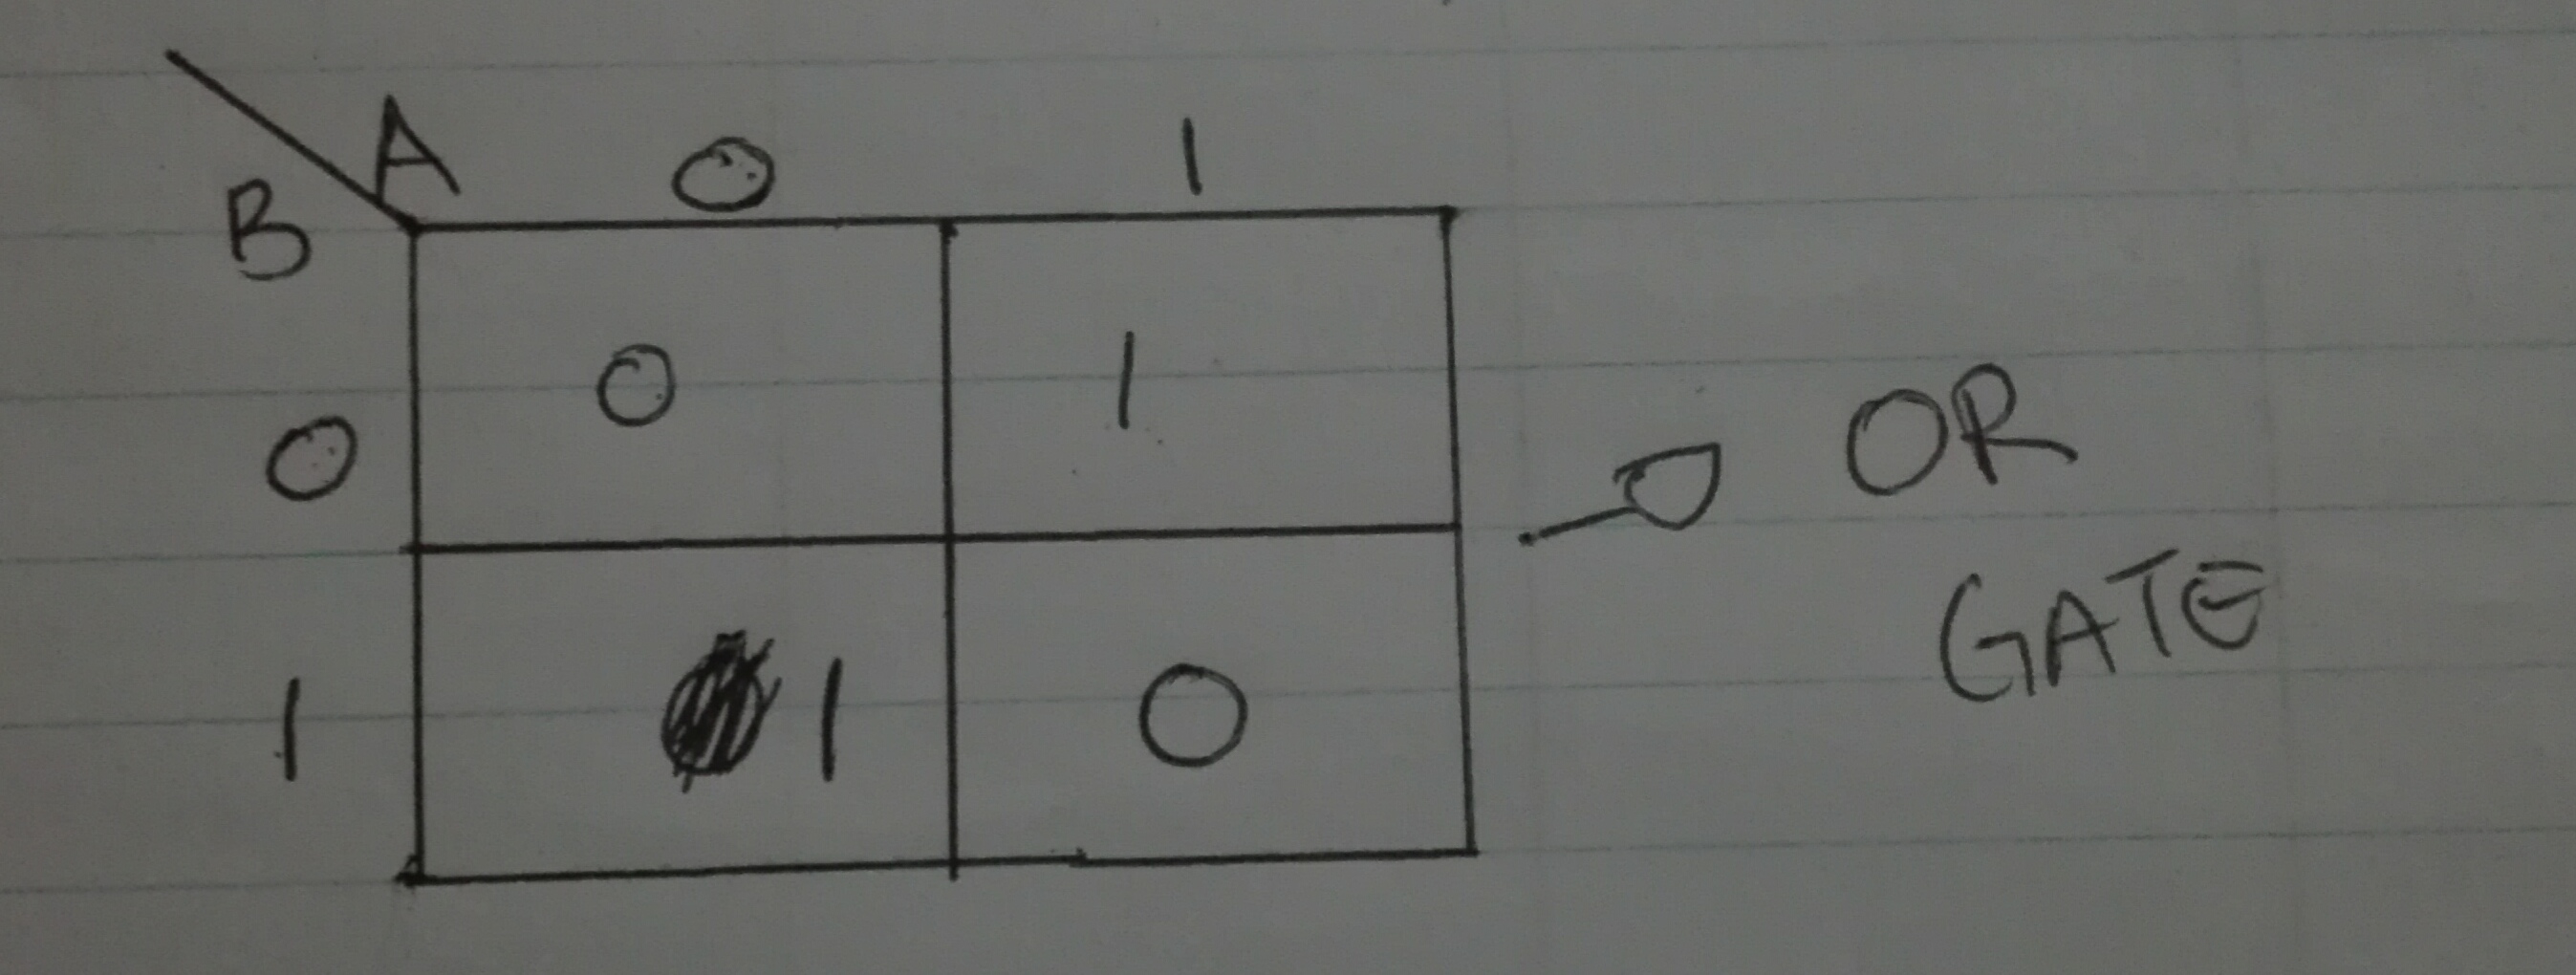 A 0 1
B
0 0 1
1 1 0
OR
GATE